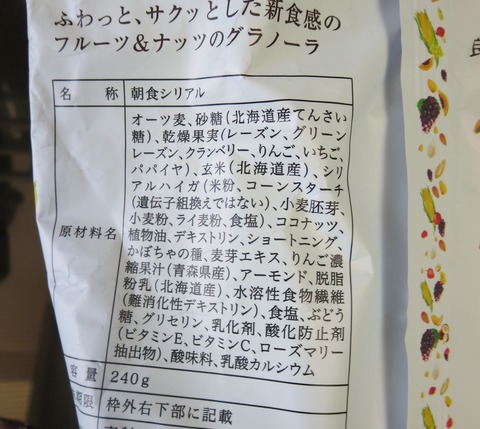 ふわっと、サクッとした新食感の
フルーツ&ナッツのグラノーラ
名 称 朝食シリアル
原材料名
オーツ麦、砂糖(北海道産てんさい
糖)、乾燥果実(レーズン、グリーン
レーズン、クランベリー、りんご、いちご、
パパイヤ)、玄米(北海道産)、シリ
アルハイガ(米粉、コーンスターチ
(遺伝子組換えではない)、小麦胚芽、
小麦粉、ライ麦粉、食塩)、ココナッツ、
植物油、デキストリン、ショートニング、
かぼちゃの種、麦芽エキス、りんご濃
縮果汁(青森県産)、アーモンド、脱脂
粉乳(北海道産)、水溶性食物繊維
(難消化性デキストリン)、食塩、ぶどう
糖、グリセリン、乳化剤、酸化防止剤
(ビタミンE、ビタミンC、ローズマリー
抽出物)、酸味料、乳酸カルシウム
容 量 240g
期限 枠外右下部に記載